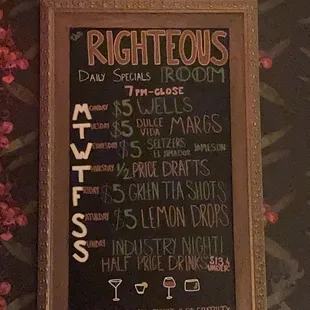 the RIGHTEOUS
DAILY SPECIALS ROOM
7PM-CLOSE
MONDAY $5 WELLS
TUESDAY $5 DULCE VIDA MARGS
WEDNESDAY $5 SELTZERS JAMESON
EL AMADOR
THURSDAY 1/2 PRICE DRAFTS
FRIDAY $5 GREEN TEA SHOTS
SATURDAY $5 LEMON DROPS
SUNDAY INDUSTRY NIGHT!
HALF PRICE DRINKS $13 & UNDER